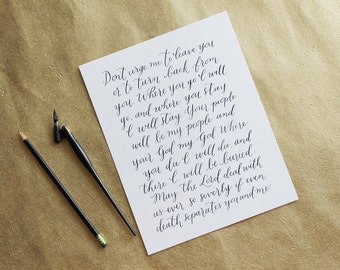 Don't urge me to leave you
or to turn back from
you. Where you go I will
go, and where you stay
I will stay. Your people
will be my people and
your God my God. Where
you die I will die, and
there I will be buried.
May the Lord deal with
us ever so severely if even
death separates you and me.